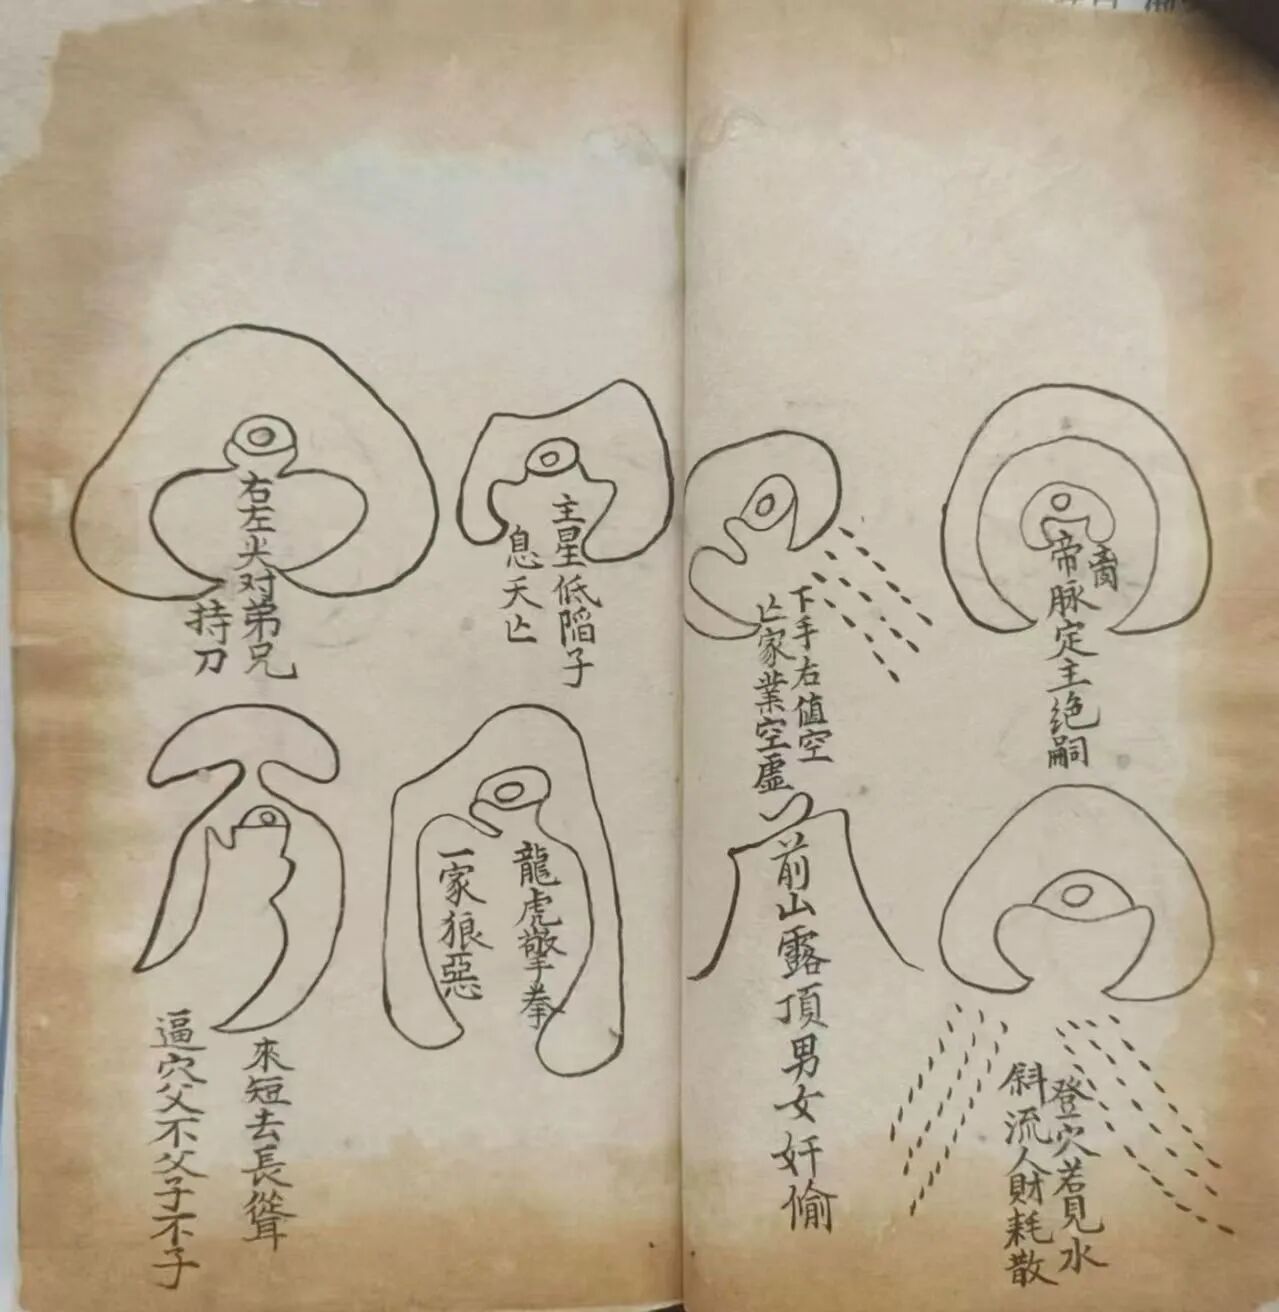 帝脉定主绝嗣
登穴若見水
斜流人財耗散
下手右值空
亡家業空虚
前山露頂男女奸偷
主星低陷子
息夭亡
龍虎擎拳
一家狼惡
右左尖对弟兄
持刀
來短去長聳
逼穴父不父子不子